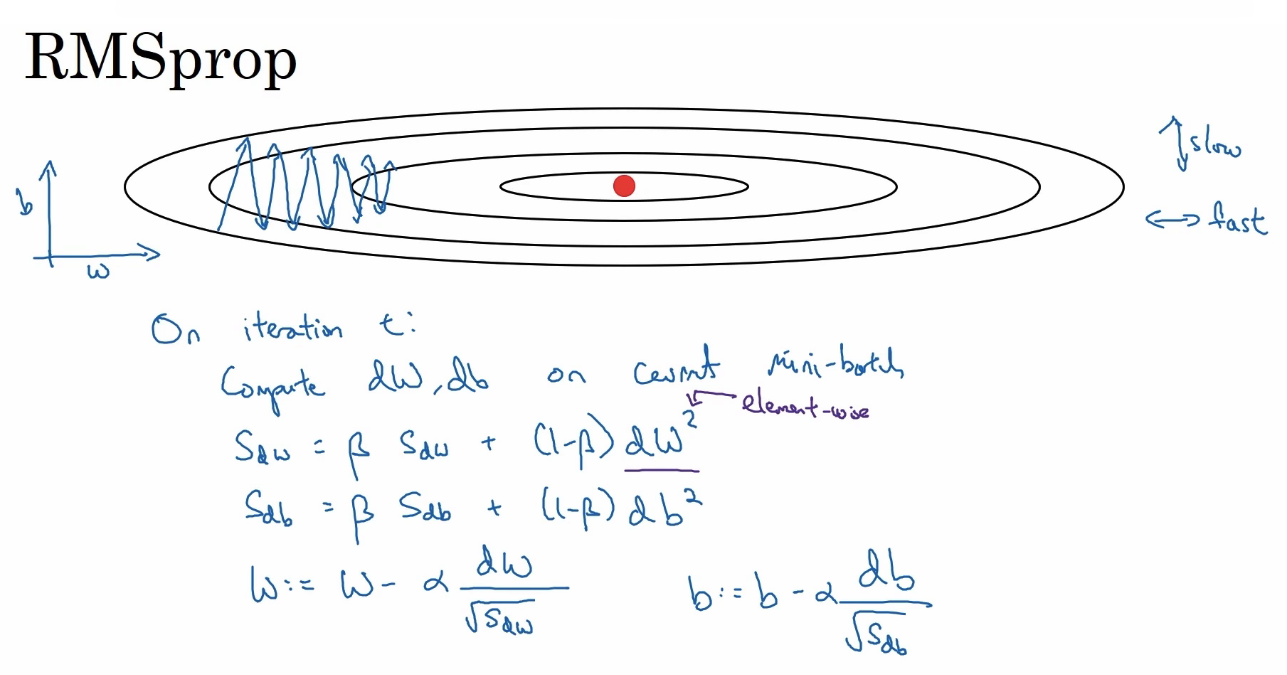 RMSprop
↕ slow
b
↔ fast
w
On iteration t:
Compute dW, db on current mini-batch
element-wise
Sdw = β Sdw + (1-β) dW²
Sdb = β Sdb + (1-β) db²
W := W - α dW/√Sdw
b := b - α db/√Sdb